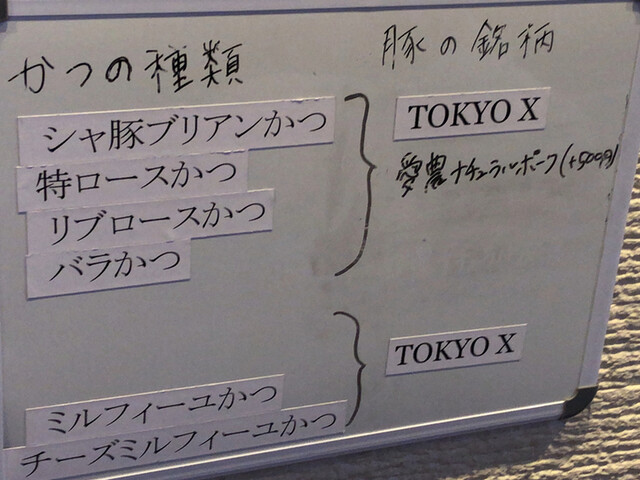 かつの種類
豚の銘柄
シャ豚ブリアンかつ
特ロースかつ
リブロースかつ
バラかつ
TOKYO X
愛農ナチュラルポーク(+500円)
ミルフィーユかつ
チーズミルフィーユかつ
TOKYO X